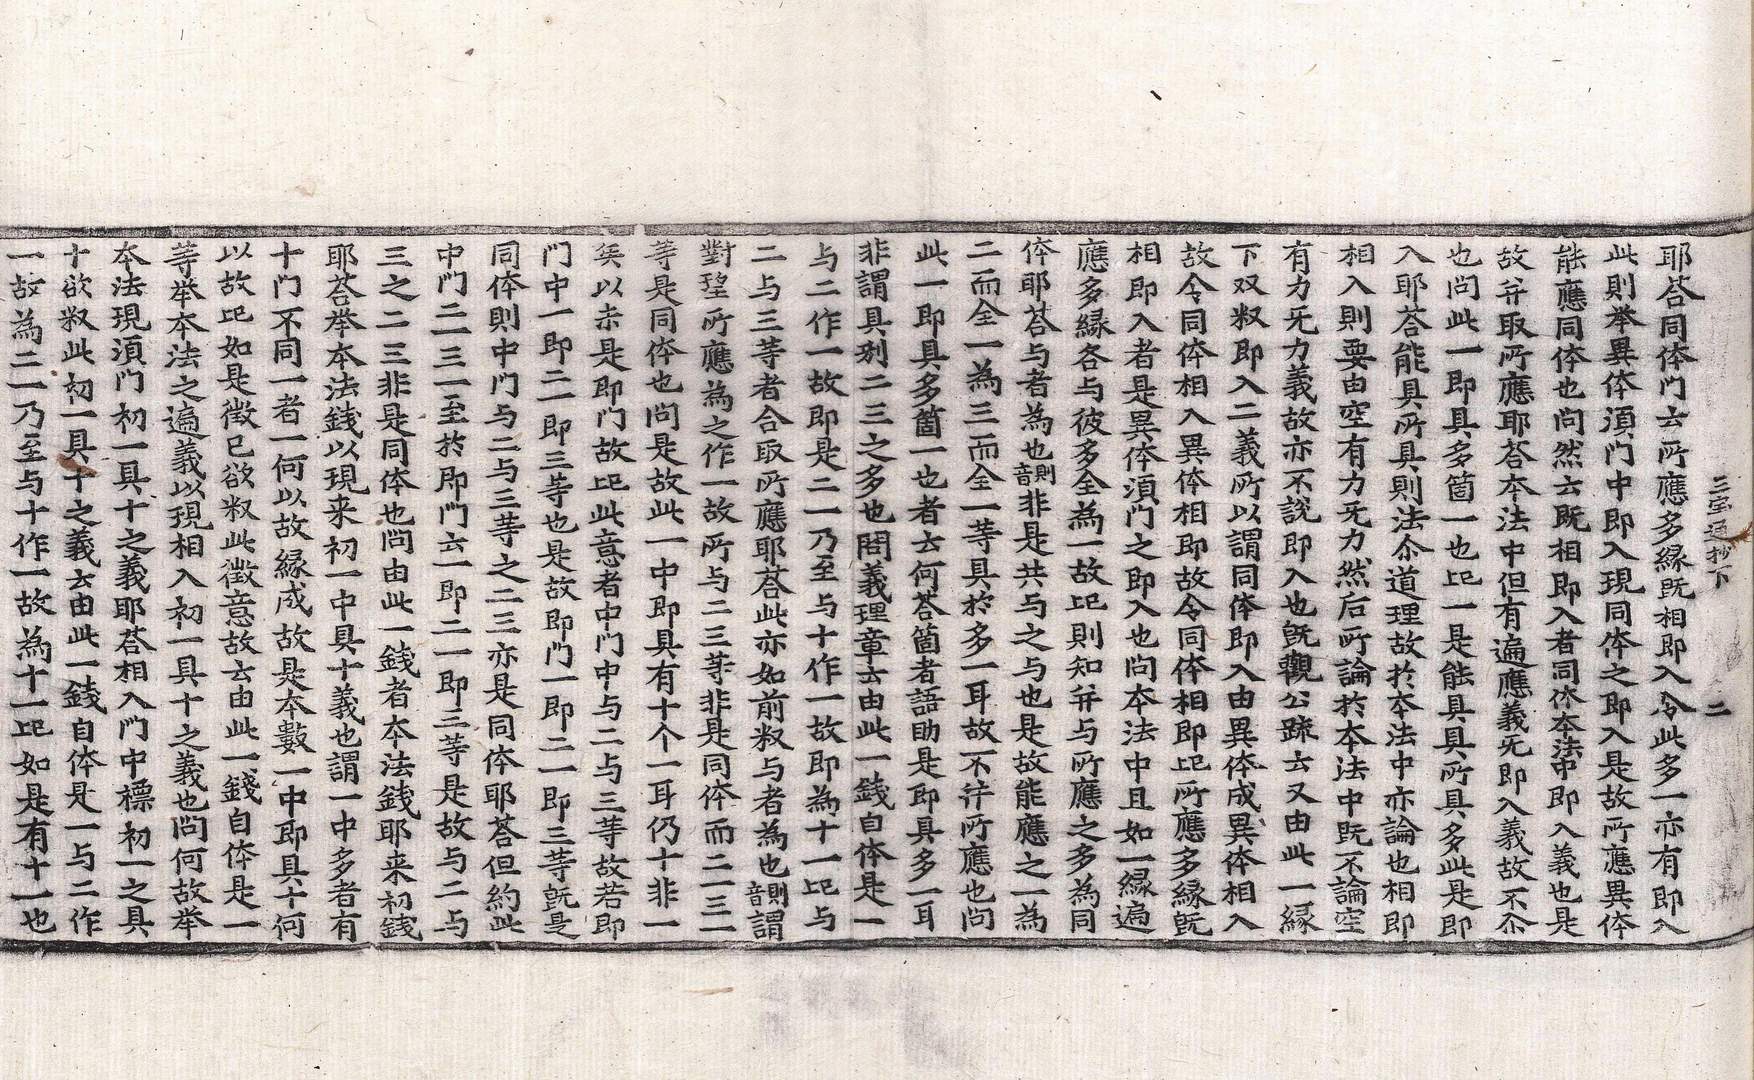 三宝通抄下　　二
耶荅同体門云所應多縁旣相即入令此多一亦有即入
此則举異体湏門中即入現同体之即入是故所應異体
能應同体也问然云旣相即入者同体本法中即入義也是
故并取所應耶荅本法中但有遍應義旡即入義故不尒
也问此一即具多箇一也𣅀一是能具具所具多此是即
入耶荅能具所具則法尒道理故於本法中亦論也相即
相入則要由空有力旡力然后所論於本法中旣不論空
有力旡力義故亦不說即入也旣觀公䟽云又由此一縁
下双叙即入二義所以謂同体即入由異体成異体相入
故令同体相入異体相即故令同体相即𣅀所應多縁旣
相即入者是異体湏門之即入也问本法中且如一縁遍
應多縁各与彼多全為一故𣅀則知并与所應之多為同
体耶荅与者為也則音非是共与之与也是故能應之一為
二而全一為三而全一等具於多一耳故不并所應也问
此一即具多箇一也者云何荅箇者語助是即具多一耳
非謂具别二三之多也問義理章云由此一銭自体是一
与二作一故即是二一乃至与十作一故即為十一𣅀与
二与三等者合取所應耶荅此亦如前叙与者為也則音謂
對望所應為之作一故所与二三等非是同体而二一三一
等是同体也问是故此一中即具有十个一耳仍十非一
矣以未是即門故𣅀此意者中門中与二与三等故若即
門中一即二一即三等也是故即門一即二一即三等旣是
同体則中門与二与三等之二三亦是同体耶荅但約此
中門二一三一至於即門云一即二一即三等是故与二与
三之二三非是同体也问由此一銭者本法銭耶来初銭
耶荅举本法銭以現来初一中具十義也謂一中多者有
十門不同一者一何以故縁成故是本數一中即具十何
以故𣅀如是徵已欲叙此徵意故云由此一錢自体是一
等举本法之遍義以現相入初一具十之義也问何故举
本法現湏門初一具十之義耶荅相入門中標初一之具
十欲叙此初一具十之義云由此一錢自体是一与二作
一故為二一乃至与十作一故為十一𣅀如是有十一也